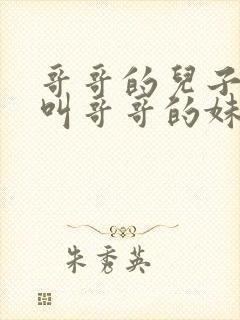 哥哥的兒子
叫哥哥的妹
朱秀英